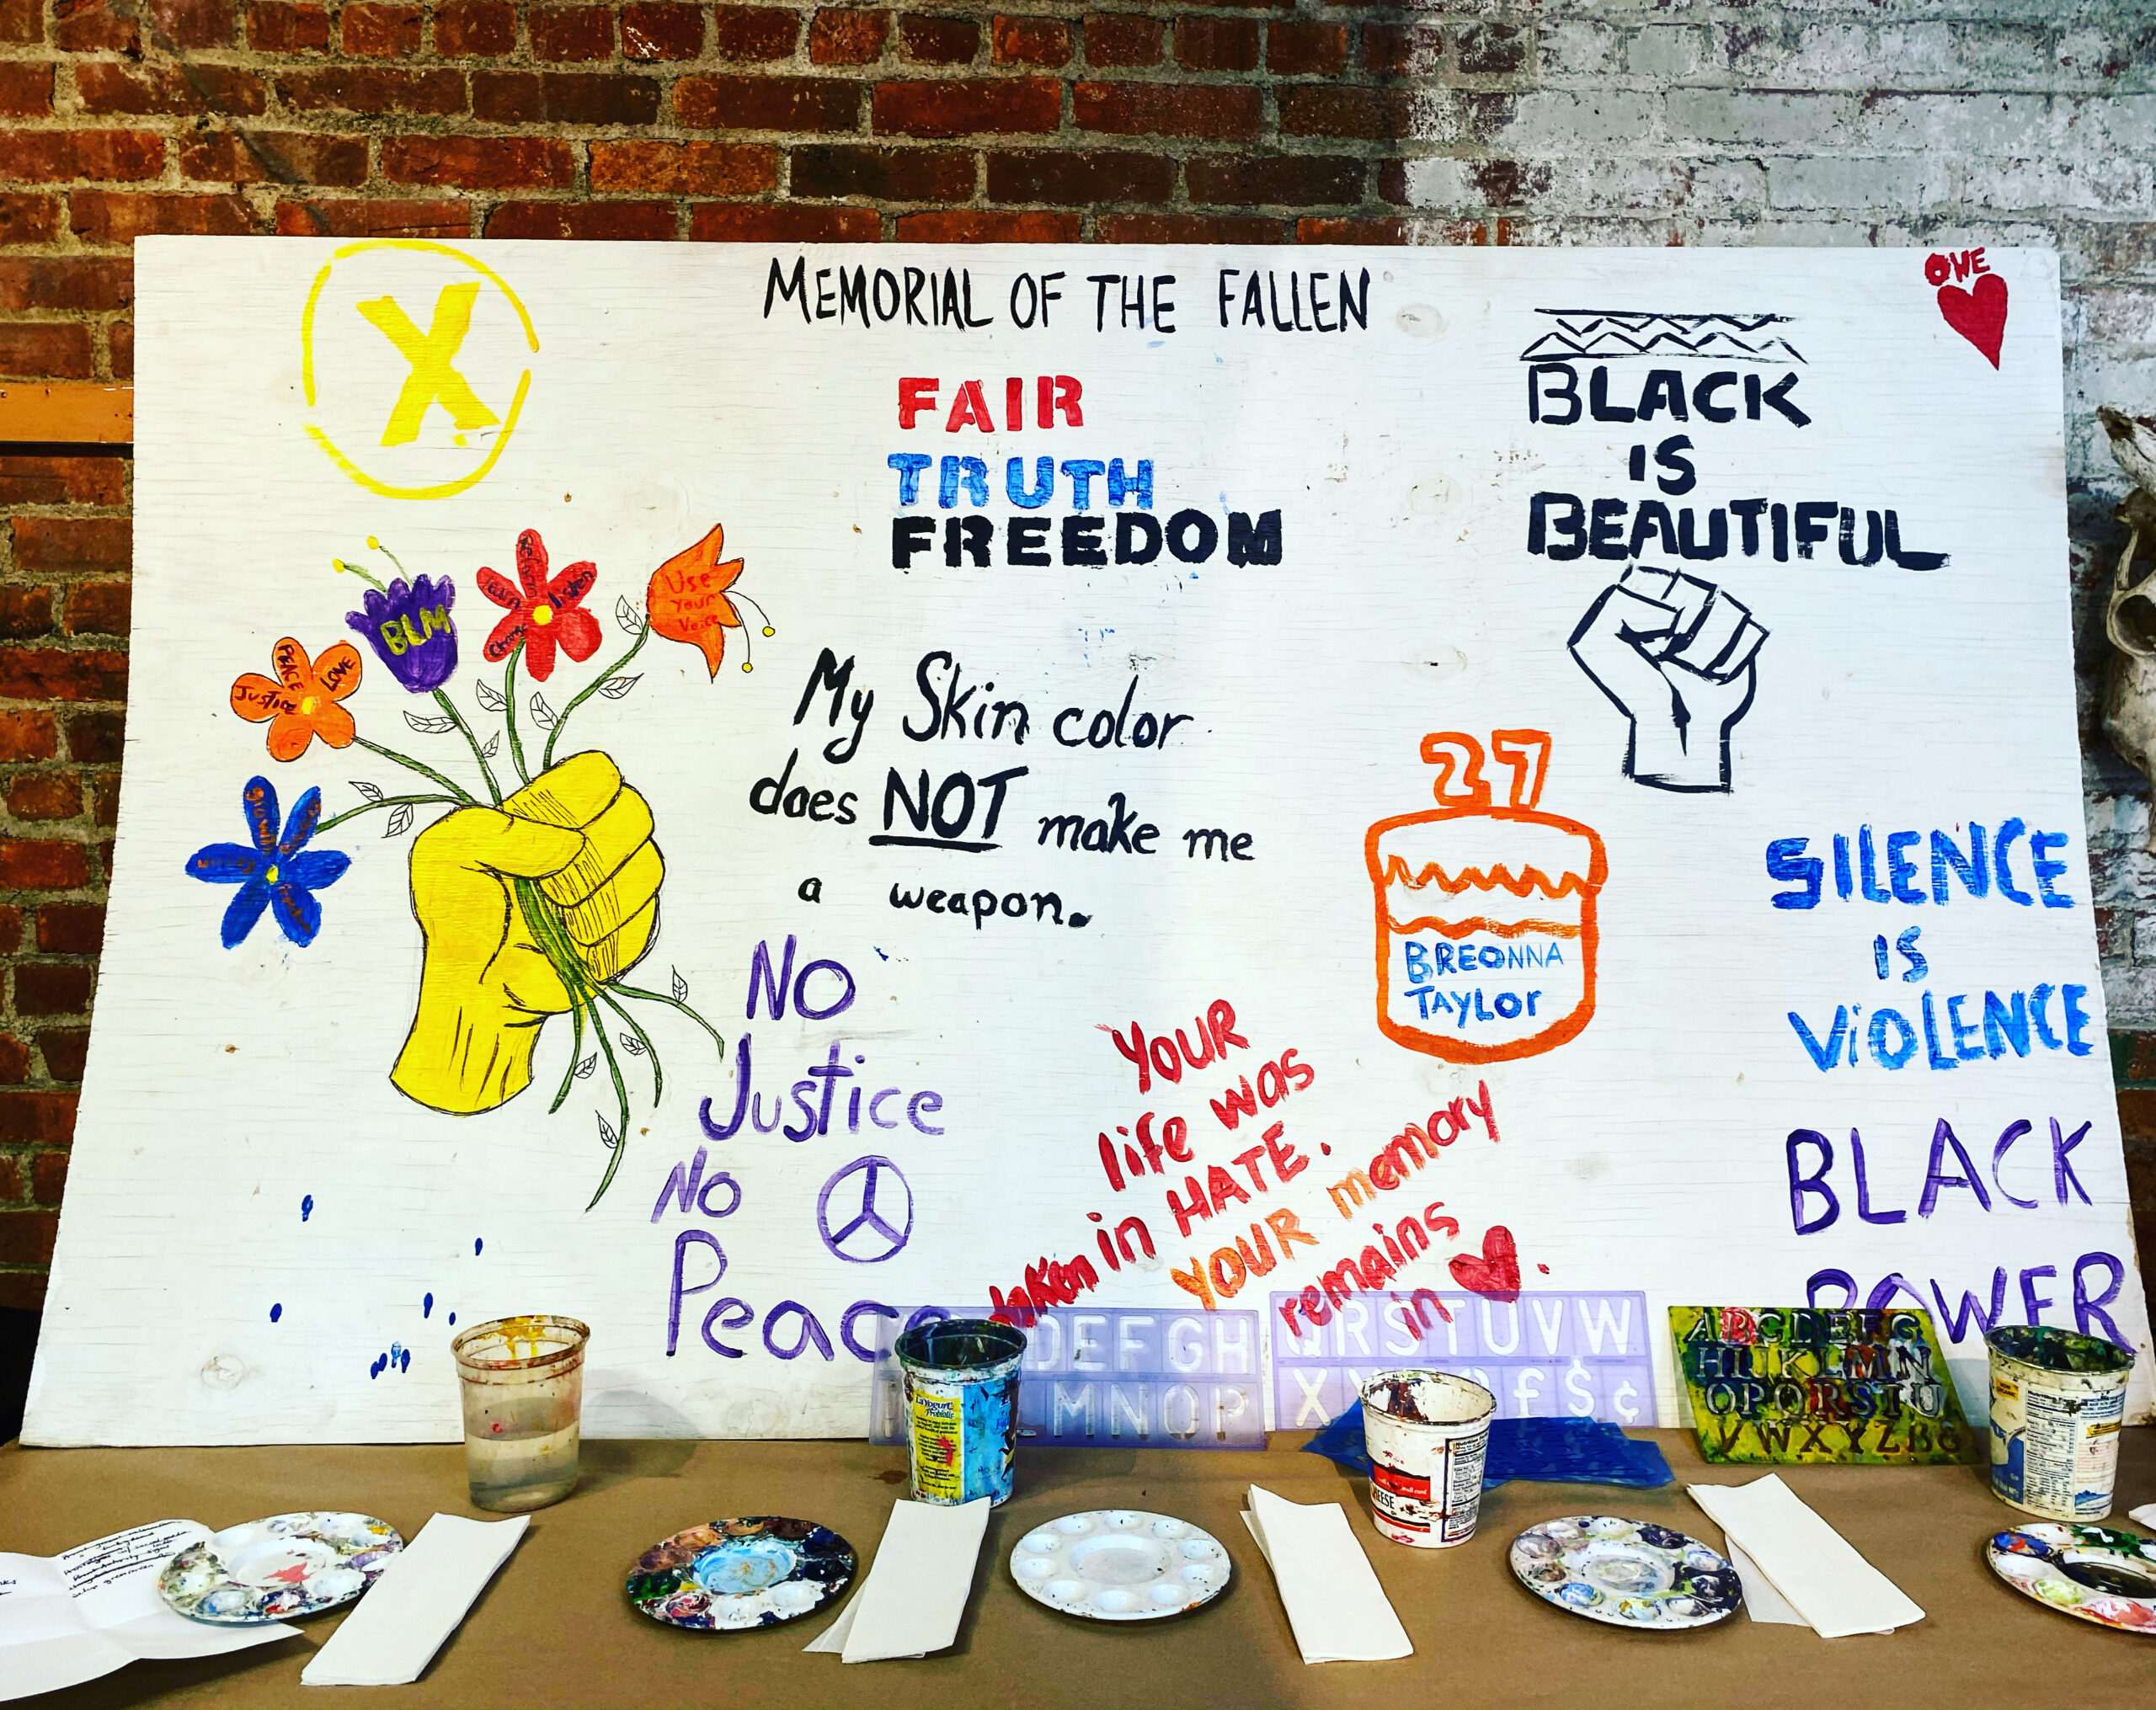 X
MEMORIAL OF THE FALLEN
ONE
FAIR
TRUTH
FREEDOM
BLACK
IS
BEAUTIFUL
BLM
PEACE
LOVE
Justice
Learn
Listen
Change
Use
Your
Voice
Growth
Unity
My Skin color
does NOT make me
a weapon.
27
BREONNA
TAYLOR
SILENCE
IS
VIOLENCE
No
Justice
No
Peace
YOUR
life was
taken in HATE.
YOUR memory
remains
in
BLACK
POWER
DEFGH
MNOP
QRSTUVW
X £$¢
ABCDEFG
HIJKLMN
OPQRSTU
VWXYZ&
LaYogurt
Probiotic
small curd